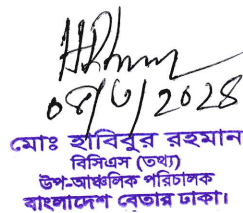 ০৪/৩/2024
মোঃ হাবিবুর রহমান
বিসিএস (তথ্য)
উপ-আঞ্চলিক পরিচালক
বাংলাদেশ বেতার ঢাকা।